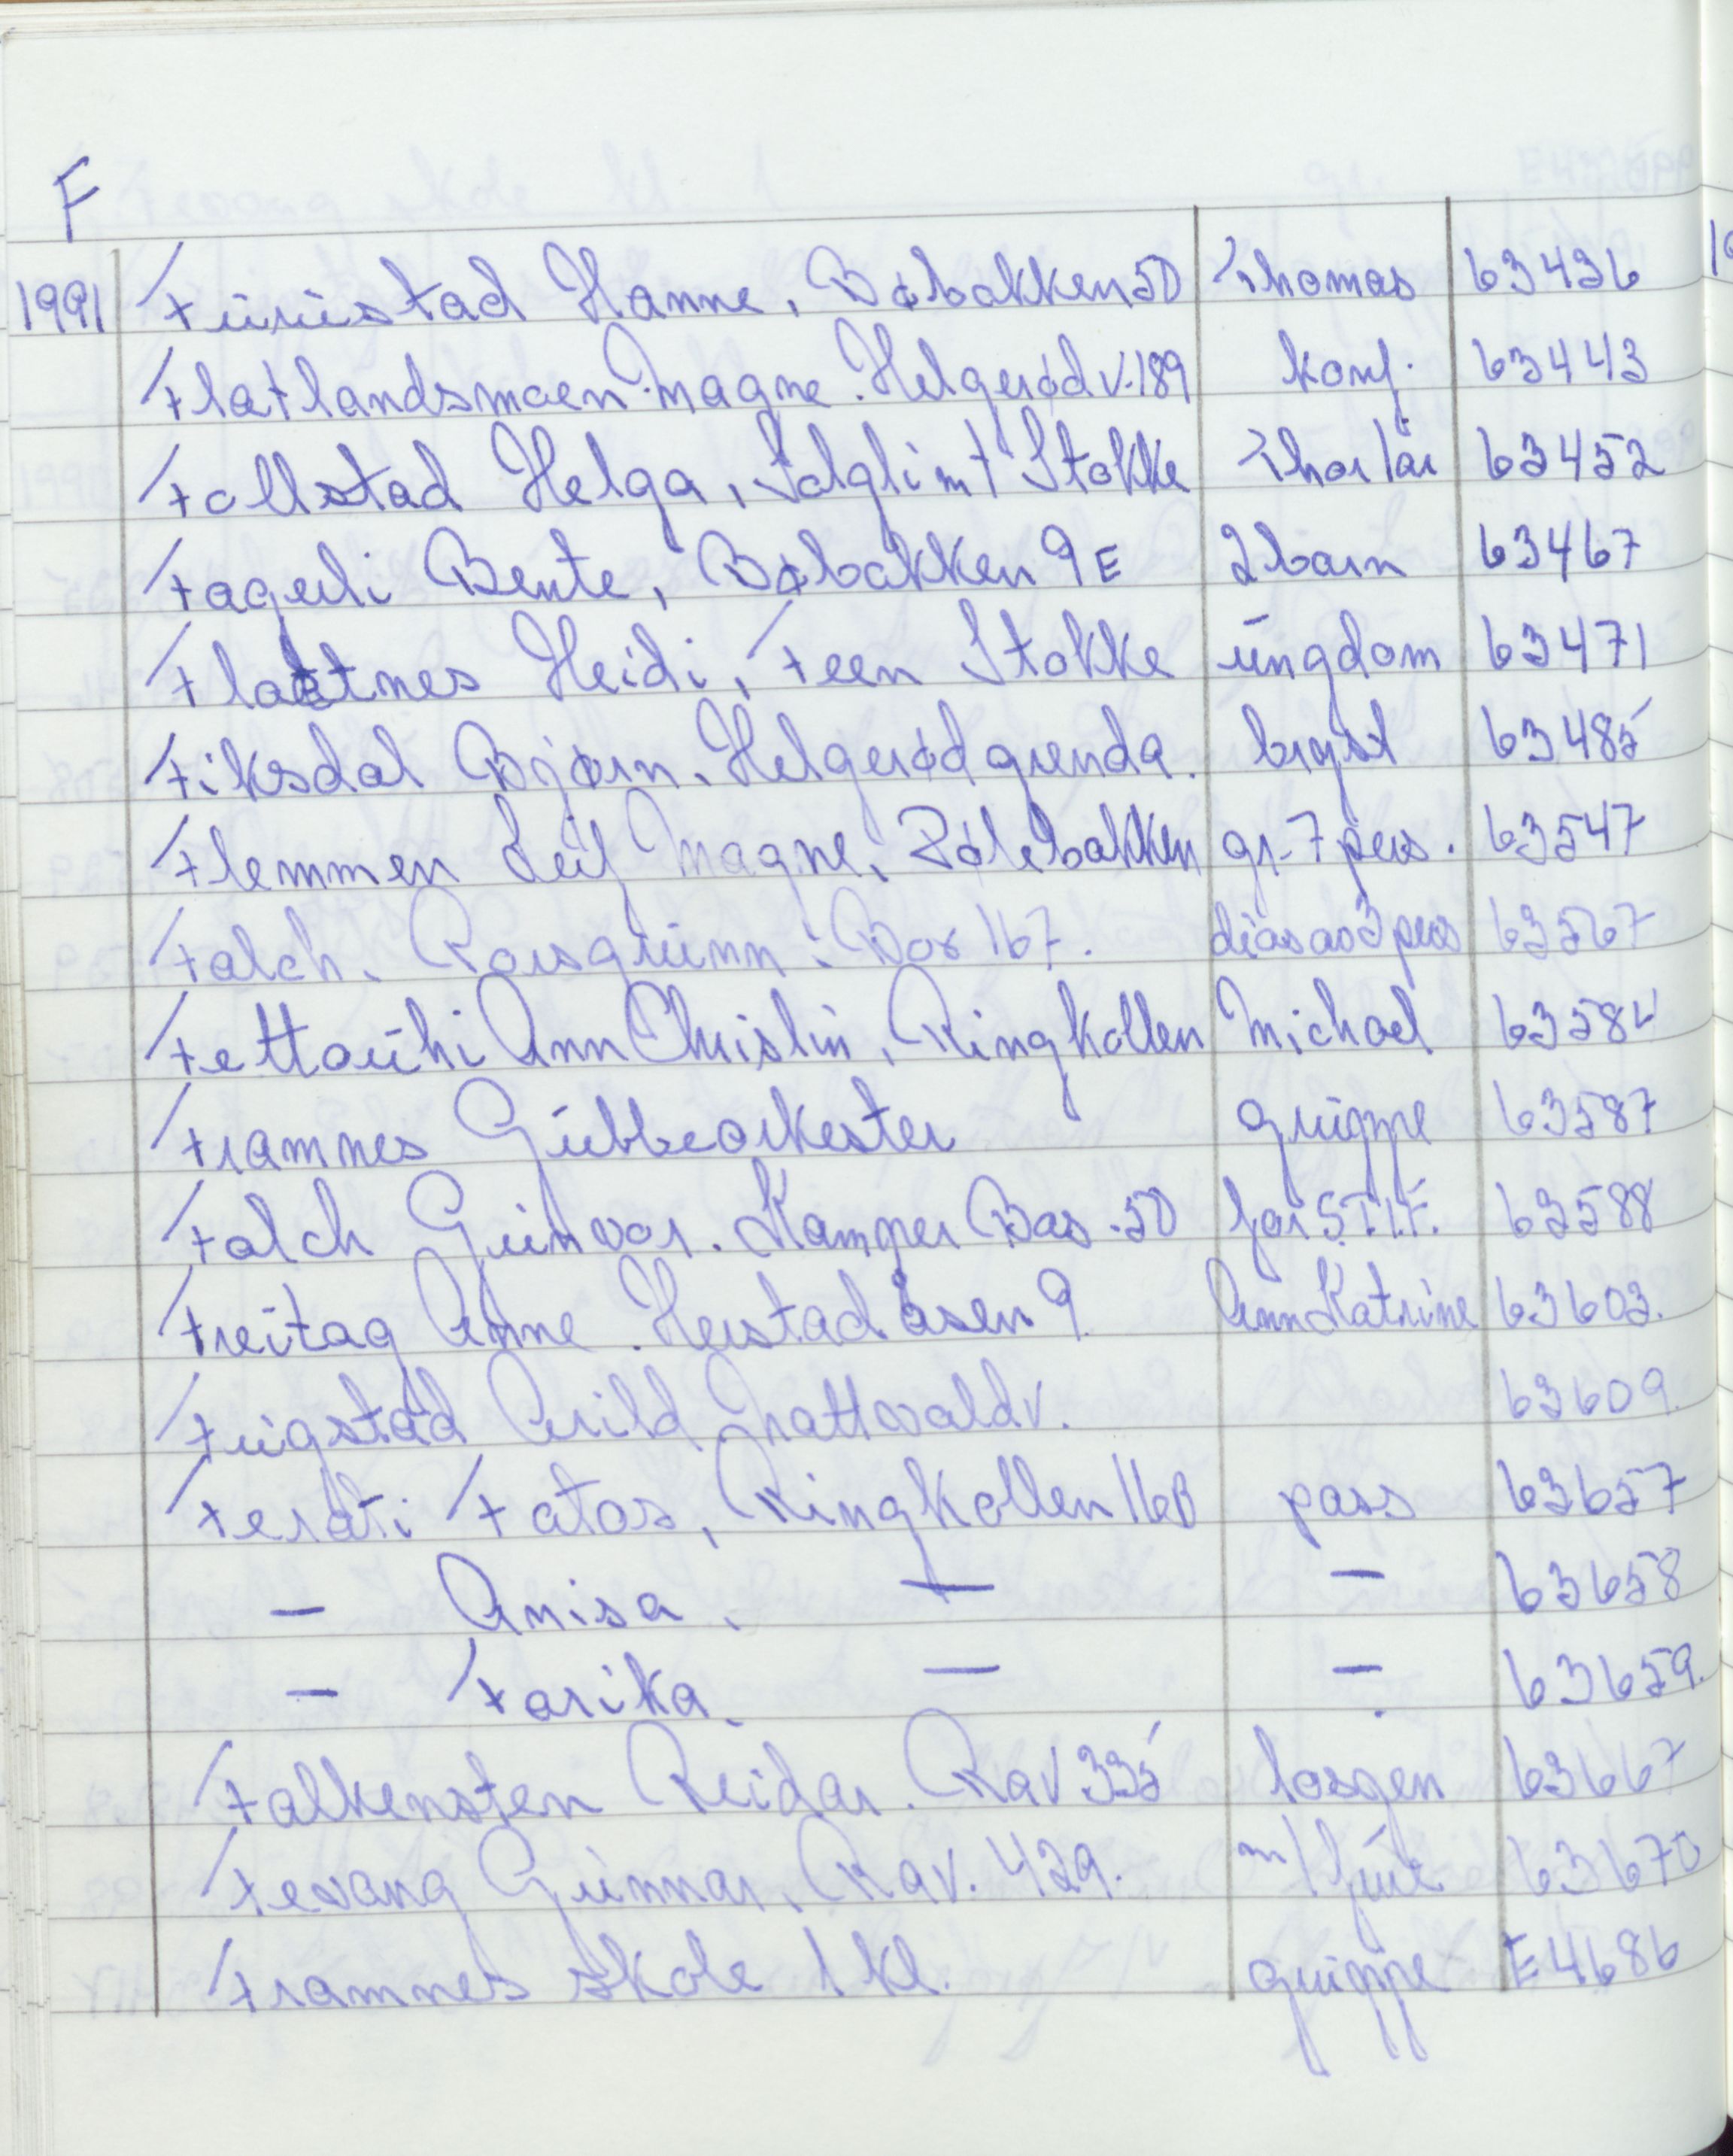 F
1991 Furustad Hanne, Bøbakken 50 Thomas 63436
Flatlandsmoen Magne. Helgerød v. 189 konf. 63443
Follstad Helga, Solglimt Stokke Thor 1år 63452
Fagerli Bente, Bøbakken 9E 2 barn 63467
Flatnes Heidi, Feen Stokke ungdom 63471
Fiksdal Bjørn. Helgerødgrenda. bryst 63485
Flemmen Leif Magne, Rølebakken gr. 7 pers. 63547
Falch. Porsgrunn. Box 167. dias av 3 pers 63567
Fettouhi Ann Christin, Ringkollen Michael 63584
Framnes Gubbeorkester gruppe 63587
Falch Gunvor. Kamper Bas. 50 for S.T.I.F. 63588
Freitag Anne. Herstadåsen 9. Ann Katrine 63603.
Fuigstad Arild. Nattvaldv. 63609.
Ferati Fatos, Ringkollen 16B pass 63657
- Anisa, - - 63658
- Farika. - - 63659.
Falkensten Reidar. Rav 335 losgen 63667
Fevang Gunnar, Rav. 429. m/frue 63670
Framnes skole 1 kl. gruppe E4686